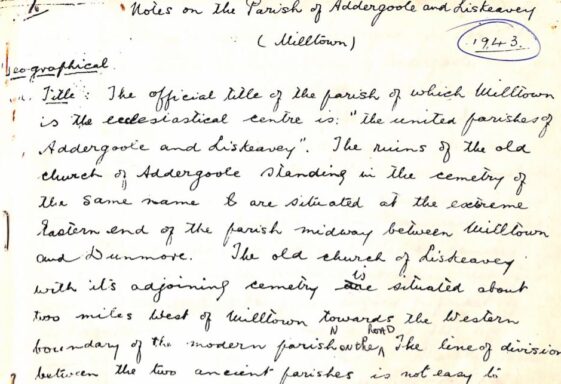 Notes on the Parish of Addergoole and Liskeavey
(Milltown)
1943.
Geographical
Title: The official title of the parish of which Milltown
is the ecclesiastical centre is: "the united parishes of
Addergoole and Liskeavey". The ruins of the old
church of Addergoole standing in the cemetery of
the same name & are situated at the extreme
Eastern end of the parish midway between Milltown
and Dunmore. The old church of Liskeavey
with it's adjoining cemetery is situated about
two miles West of Milltown towards the Western
boundary of the modern parish on the ROAD. The line of division
between the two ancient parishes is not easy to